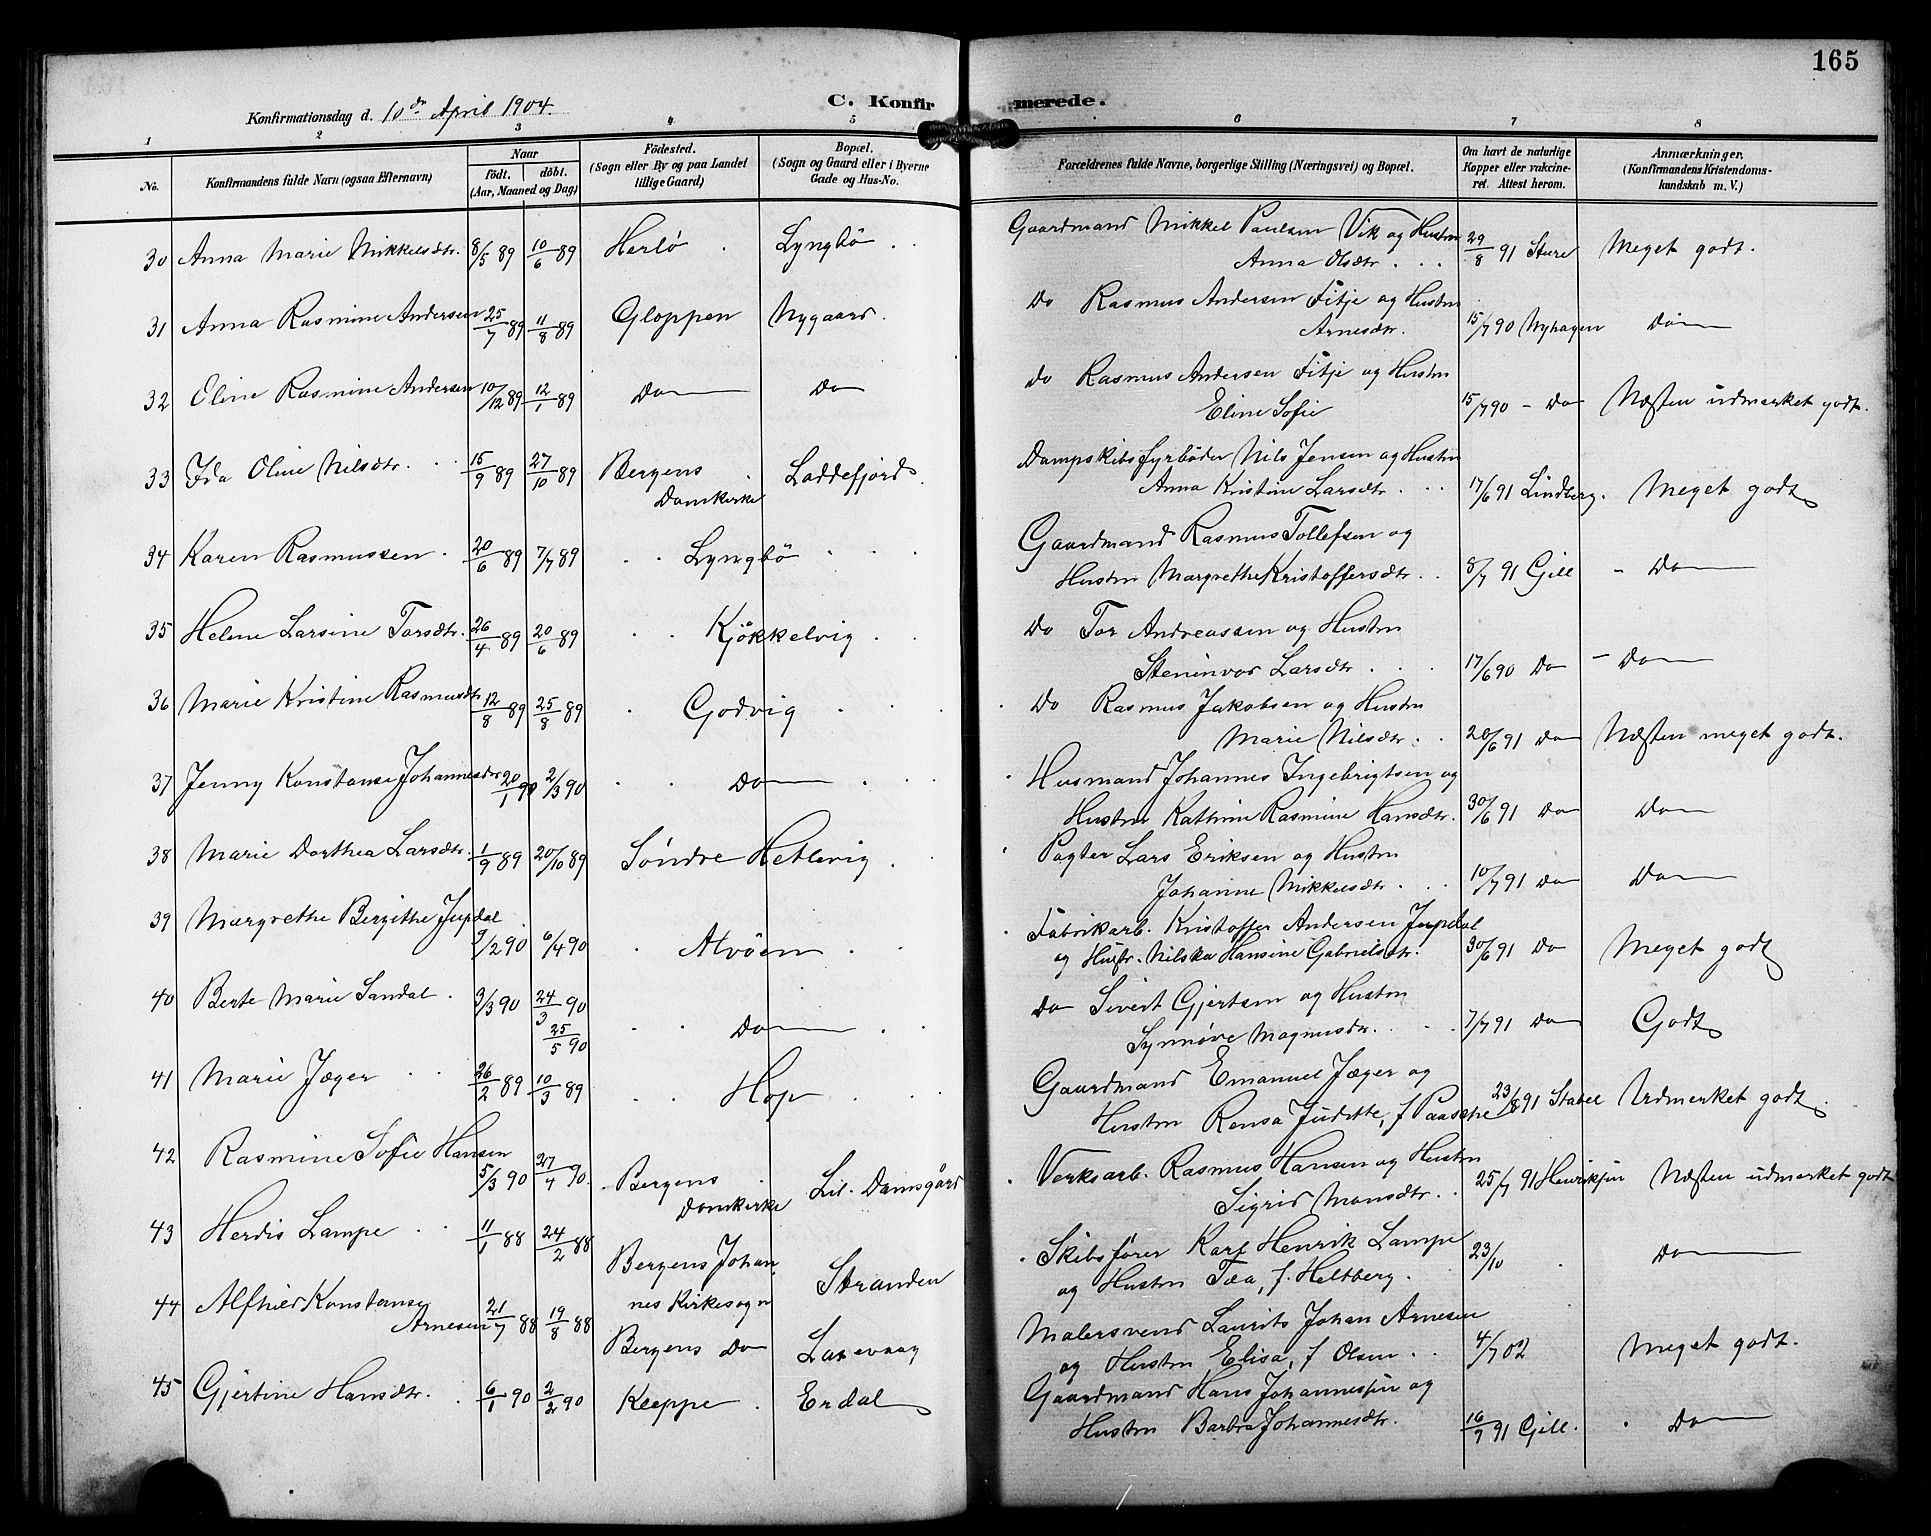 165
Konfirmationsdag d. 10de April 1904.
C. Konfirmerede.
1 2 3 4 5 6 7 8
No.
Konfirmandens fulde Navn (ogsaa Efternavn)
Naar
födt. döbt.
(Aar, Maaned og Dag)
Födested.
(Sogn eller By og paa Landet
tillige Gaard)
Bopæl.
(Sogn og Gaard eller i Byerne
Gade og Hus-No.
Forældrenes fulde Navne, borgerlige Stilling (Næringsvei) og Bopæl.
Om havt de naturlige
Kopper eller vakcine-
ret. Attest herom.
Anmærkninger.
(Konfirmandens Kristendoms-
kundskab m. V.)
30 Anna Marie Mikkelsdtr. 8/5 89 10/6 89 Herlö Lyngbö Gaardmand Mikkel Paulsen Vik og Hustru
Anna Olsdtr. 29/8 91 Sture Meget godt.
31 Anna Rasmine Andersen 25/7 89 11/8 89 Gloppen Nygaard. Do Rasmus Andersen Fitje og Hustru
Arnesdtr. 15/7 90 Nyhagen Do
32 Eline Rasmine Andersen 10/12 89 12/1 89 Do Do Do Rasmus Andersen Fitje og Hustru
Eline Sofie 15/7 90 - Do Næsten udmærket godt.
33 Ida Oline Nilsdtr. 15/9 89 27/10 89 Bergens
Domkirke Laddefjord Dampskibsfyrböder Nils Jensen og Hustru
Anna Kristine Larsdtr. 17/6 91 Lindberg. Meget godt
34 Karen Rasmussen. 20/6 89 7/7 89 Lyngbö Gaardmand Rasmus Tollefsen og
Hustru Margrethe Kristoffersdtr. 8/7 91 Gjell - Do
35 Helene Larsine Torsdtr. 26/4 89 20/6 89 Kjökkelvig Do Tor Andreassen og Hustru
Steninvor Larsdtr. 17/6 90 Do - Do
36 Marie Kristine Rasmusdtr 12/8 89 25/8 89 Godvig Do Rasmus Jakobsen og Hustru
Marie Nilsdtr. 20/6 91 Do Næsten meget godt.
37 Jenny Konstanse Johannesdtr 20/1 90 2/3 90 Do Husmand Johannes Ingebrigtsen og
Hustru Kathrine Rasmine Hansdtr. 30/6 91 Do Do
38 Marie Dorthea Larsdtr. 1/9 89 20/10 89 Söndre Hetlevig. Pagter Lars Eriksen og Hustru
Johanne Mikkelsdtr. 10/7 91 Do Do
39 Margrethe Bergithe Jupdal 9/2 90 6/4 90 Alvöen Fabrikarb. Kristoffer Andersen Jupdal
og Hustr. Nilska Hansine Gabrielsdtr. 30/6 91 Do Meget godt
40 Berte Marie Sandal. 3/3 90 24/3 90
25/5 90 Do Do Sivert Gjertsen og Hustru
Synnöve Magnusdtr. 7/7 91 Do Godt
41 Marie Jæger 26/2 89 10/3 89 Hop Gaardmand Emanuel Jæger og
Hustru Rensa Judette, f Paasche 23/8 91 Stabel Udmerket godt.
42 Rasmine Sofie Hansen 5/3 90 27/4 90. Bergens
Domkirke Lil. Damsgård Verksarb. Rasmus Hansen og Hustru
Sigrid Monsdtr. 25/7 91 Henriksen Næsten udmerket godt
43 Herdis Lampe 11/1 88 24/2 88 Bergens Johan-
nes Kirkesogn Stranden Skibsförer Karl Henrik Lampe
og Hustru Tea, f. Heltberg. 23/10 Do
44 Alfhild Konstanse
Arnesen 21/7 88 19/8 88 Bergens Do Laxevaag Malersvend Laurits Johan Arnesen
og Hustru Elisa, f Olsen 4/7 02 Meget godt.
45 Gjertine Hansdtr. 6/1 90 2/2 90 Kleppe. Erdal Gaardmand Hans Johannessen og
Hustru Barbra Johannesdtr. 16/7 91 Gjell. Do